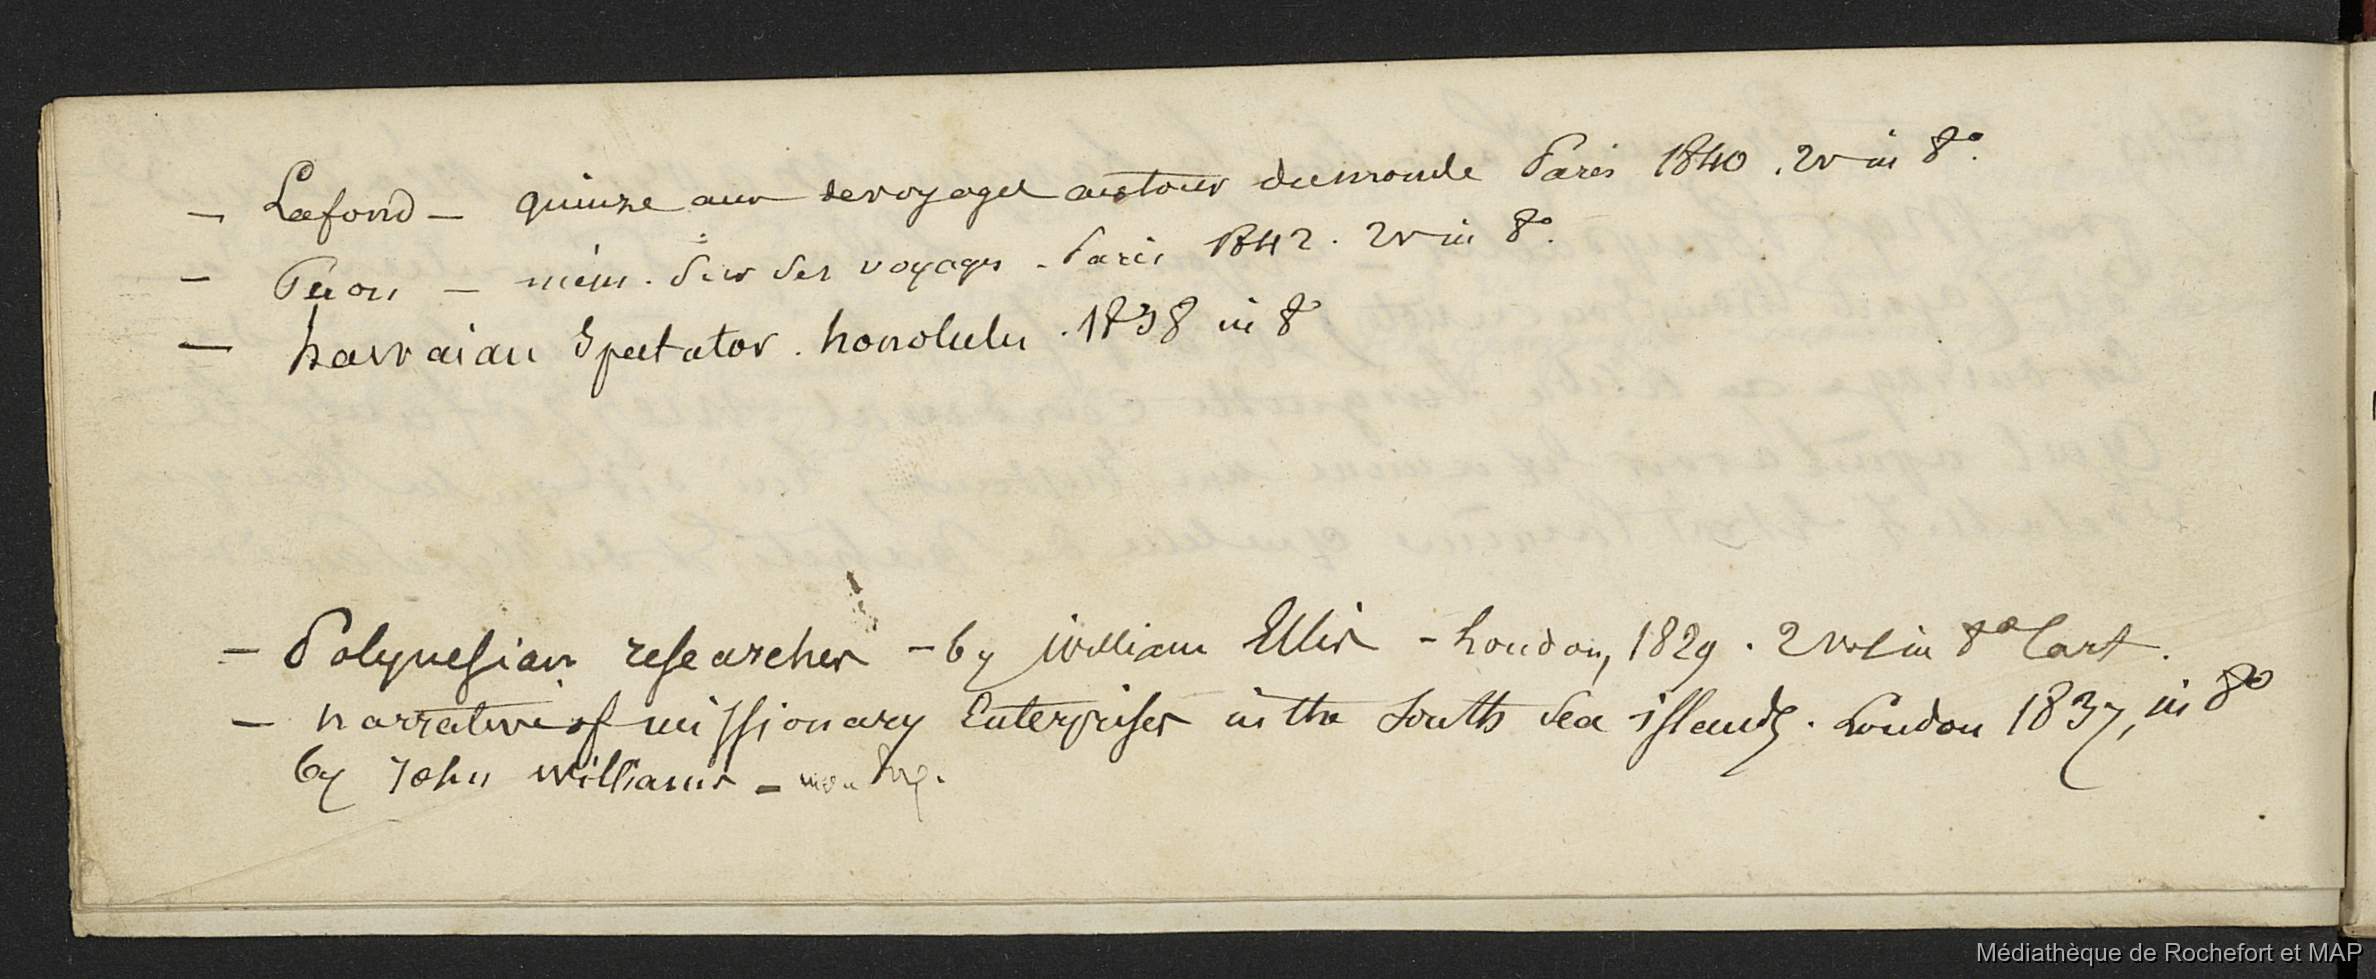 — Lafond — quinze ans de voyages autour du monde Paris 1840 . 2 v in 8°.
— Péron — mém. sur ses voyages - Paris 1842 . 2 v in 8°.
— hawaian Spectator . honolulu . 1838 in 8°
— Polynesian researches — by William Ellis - London, 1829 . 2 vol in 8° Cart.
— narrative of missionary Enterprises in the South Sea islands . London 1837, in 8°
by John Williams —
Médiathèque de Rochefort et MAP